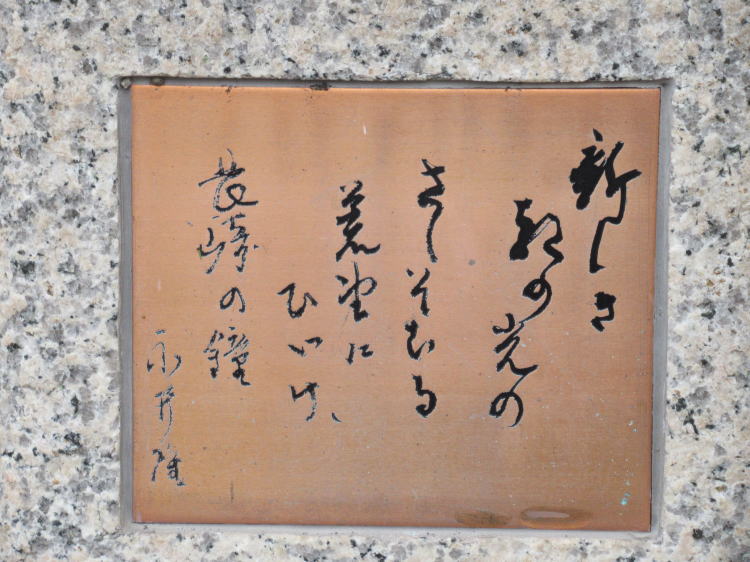 新しき
朝の光の
さしそむる
荒野に
ひゞけ
長崎の鐘
永井隆